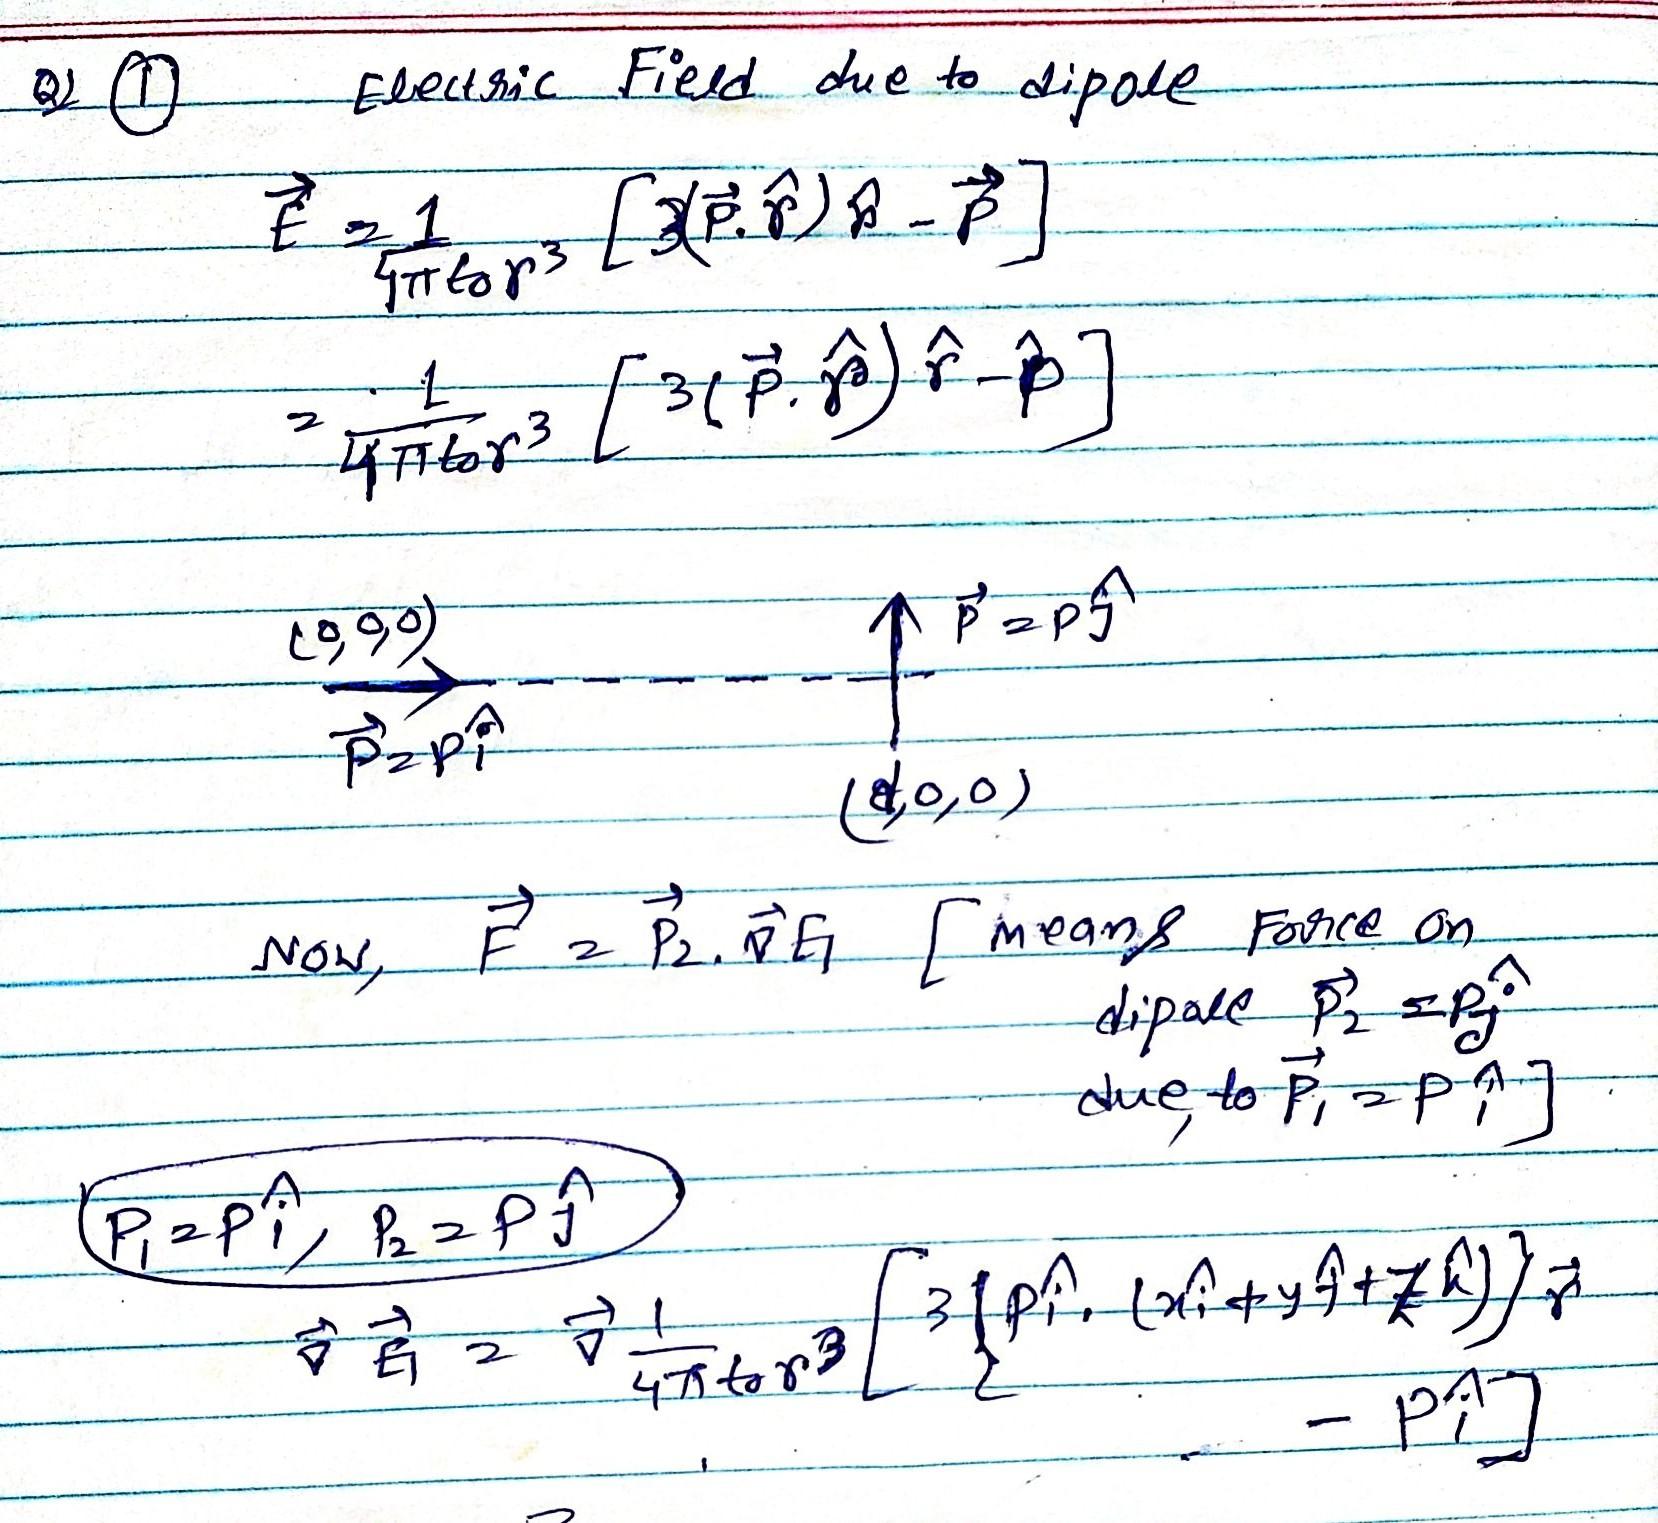 Q1 ① Electric Field due to dipole
E⃗ = 1/4πε₀r³ [3(p⃗.r̂) r̂ - p⃗]
= 1/4πε₀r³ [3(p⃗.r̂) r̂ - p̂]
(0,0,0) p⃗ = pĵ
p⃗ = pî
(d,0,0)
Now, F⃗ = P⃗₂.∇⃗E₁ [means Force on
dipole P⃗₂ = pĵ
due to P⃗₁ = pî]
P₁ = pî, P₂ = pĵ
∇⃗ E⃗₁ = ∇⃗ 1/4πε₀r³ [3{pî.(xî+yĵ+zk̂)}r⃗
- pî]